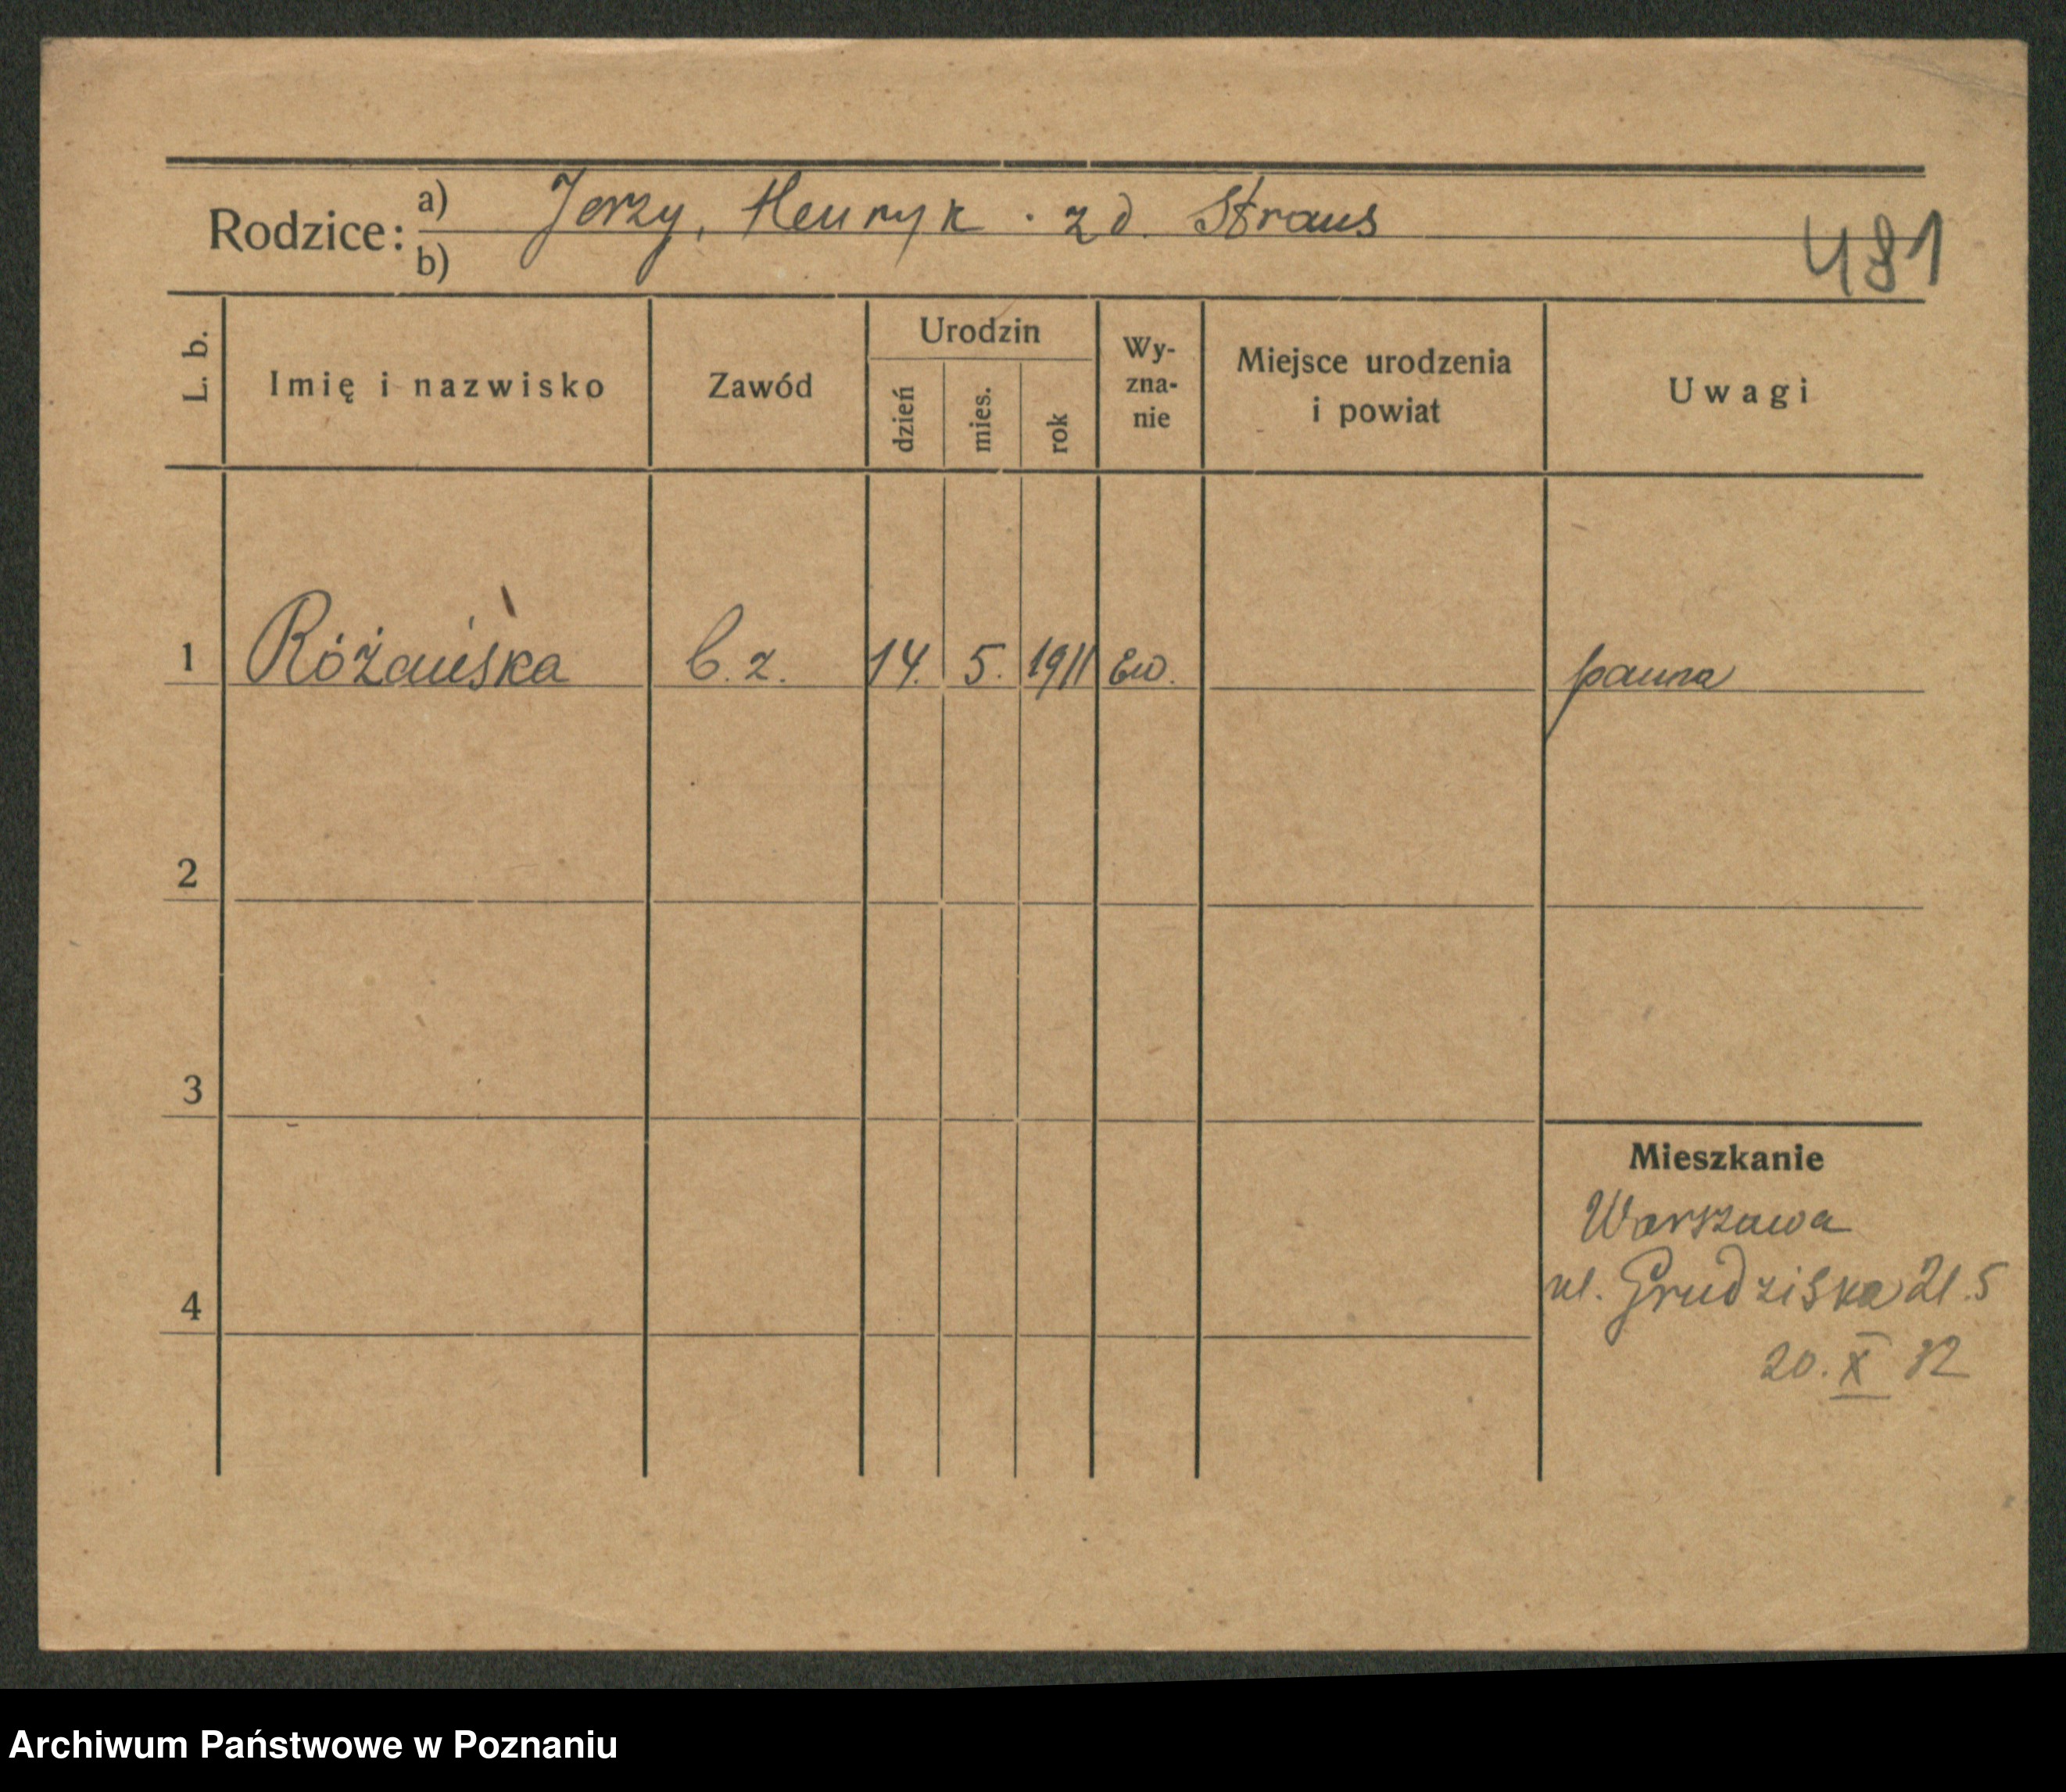 Rodzice: a) Jerzy, Henryk . zd. Straus
b)
481
L. b.
Imię i nazwisko
Zawód
Urodzin
dzień
mies.
rok
Wy-
zna-
nie
Miejsce urodzenia
i powiat
Uwagi
1 Różańska b. z. 14. 5. 1911 Ew. panna
2
3
4
Mieszkanie
Warszawa
ul. Grudziska 21.5
20. X 32
Archiwum Państwowe w Poznaniu